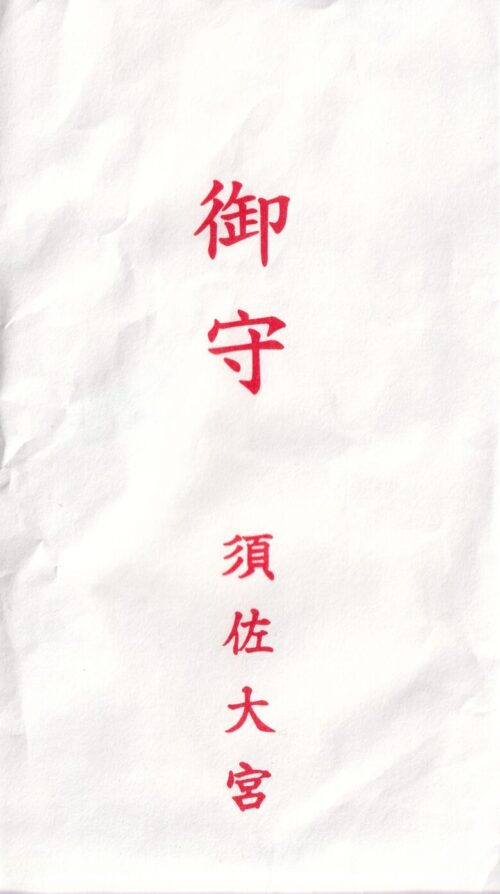 御守
須佐大宮